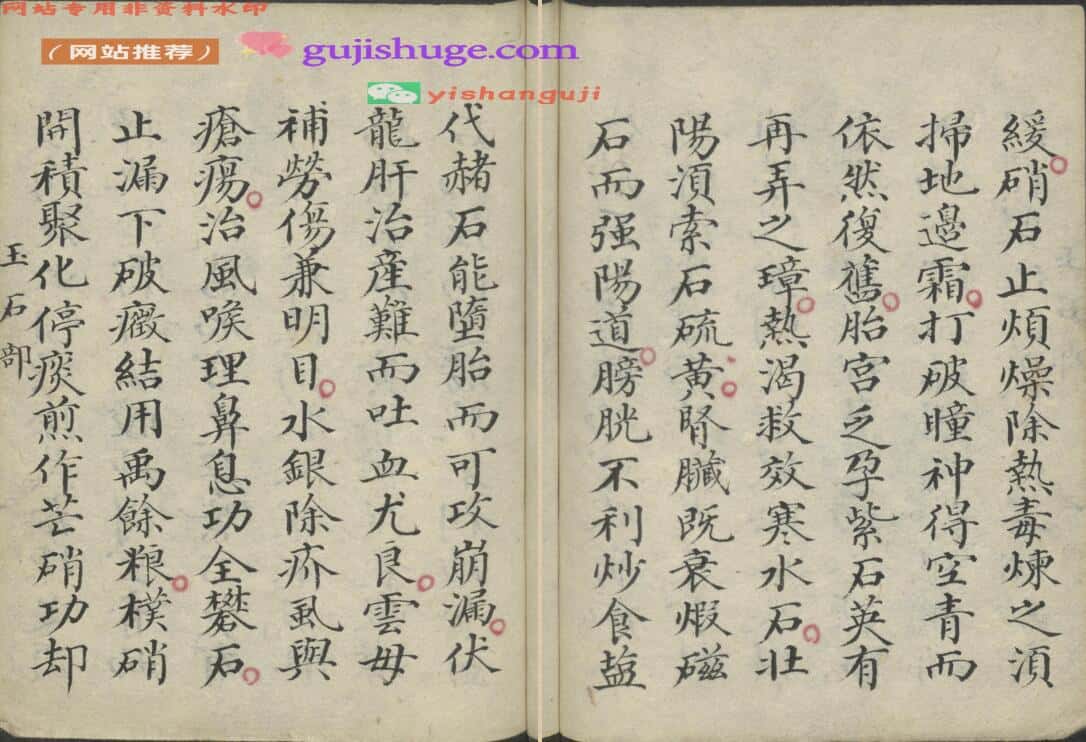 网站专用非资料水印
（网站推荐）
gujishuge.com
yishanguji
緩硝石止煩燥除熱毒煉之須
掃地邊霜打破瞳神得空青而
依然復舊胎宮乏孕紫石英有
再弄之璋熱渴救效寒水石壯
陽須索石硫黄腎臟既衰煆磁
石而强陽道膀胱不利炒食盐
代赭石能墮胎而可攻崩漏伏
龍肝治産難而吐血尤良雲母
補勞傷兼明目水銀除疥虱與
瘡瘍治風喉理鼻息功全礬石
止漏下破癥結用禹餘粮樸硝
開積聚化停痰煎作芒硝功却
玉石部